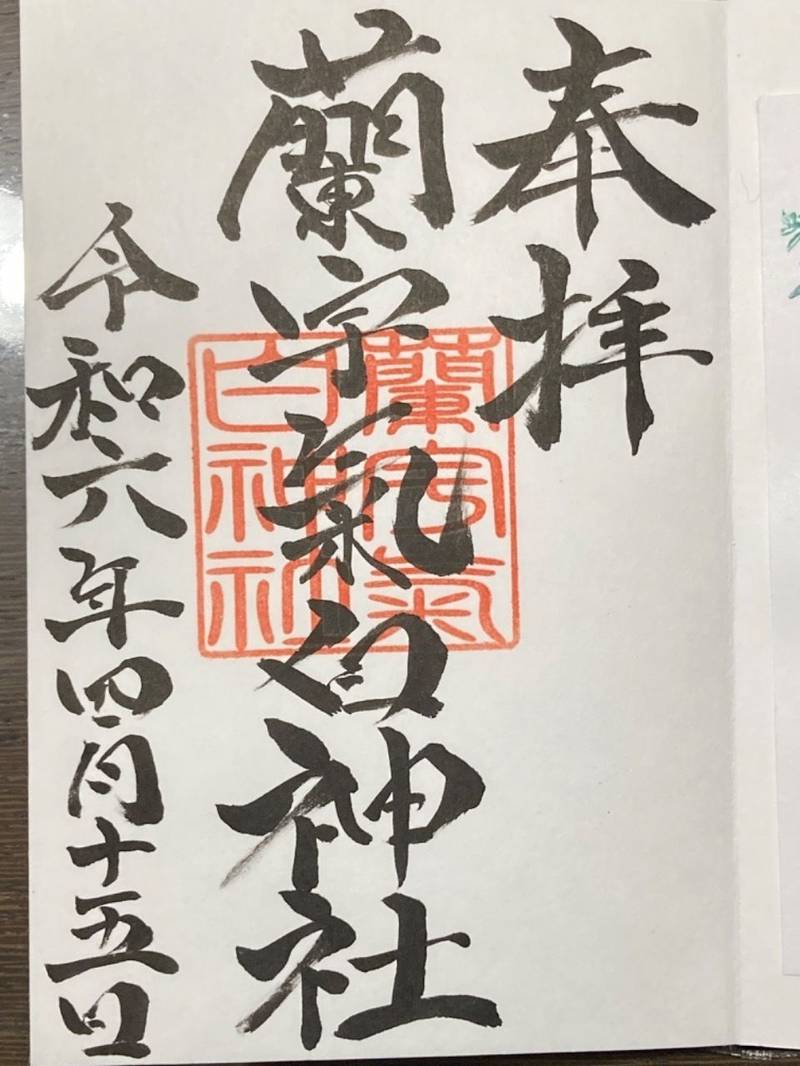 奉拝
蘭宇氣白神社
蘭宇氣
白神社
令和六年四月十五日